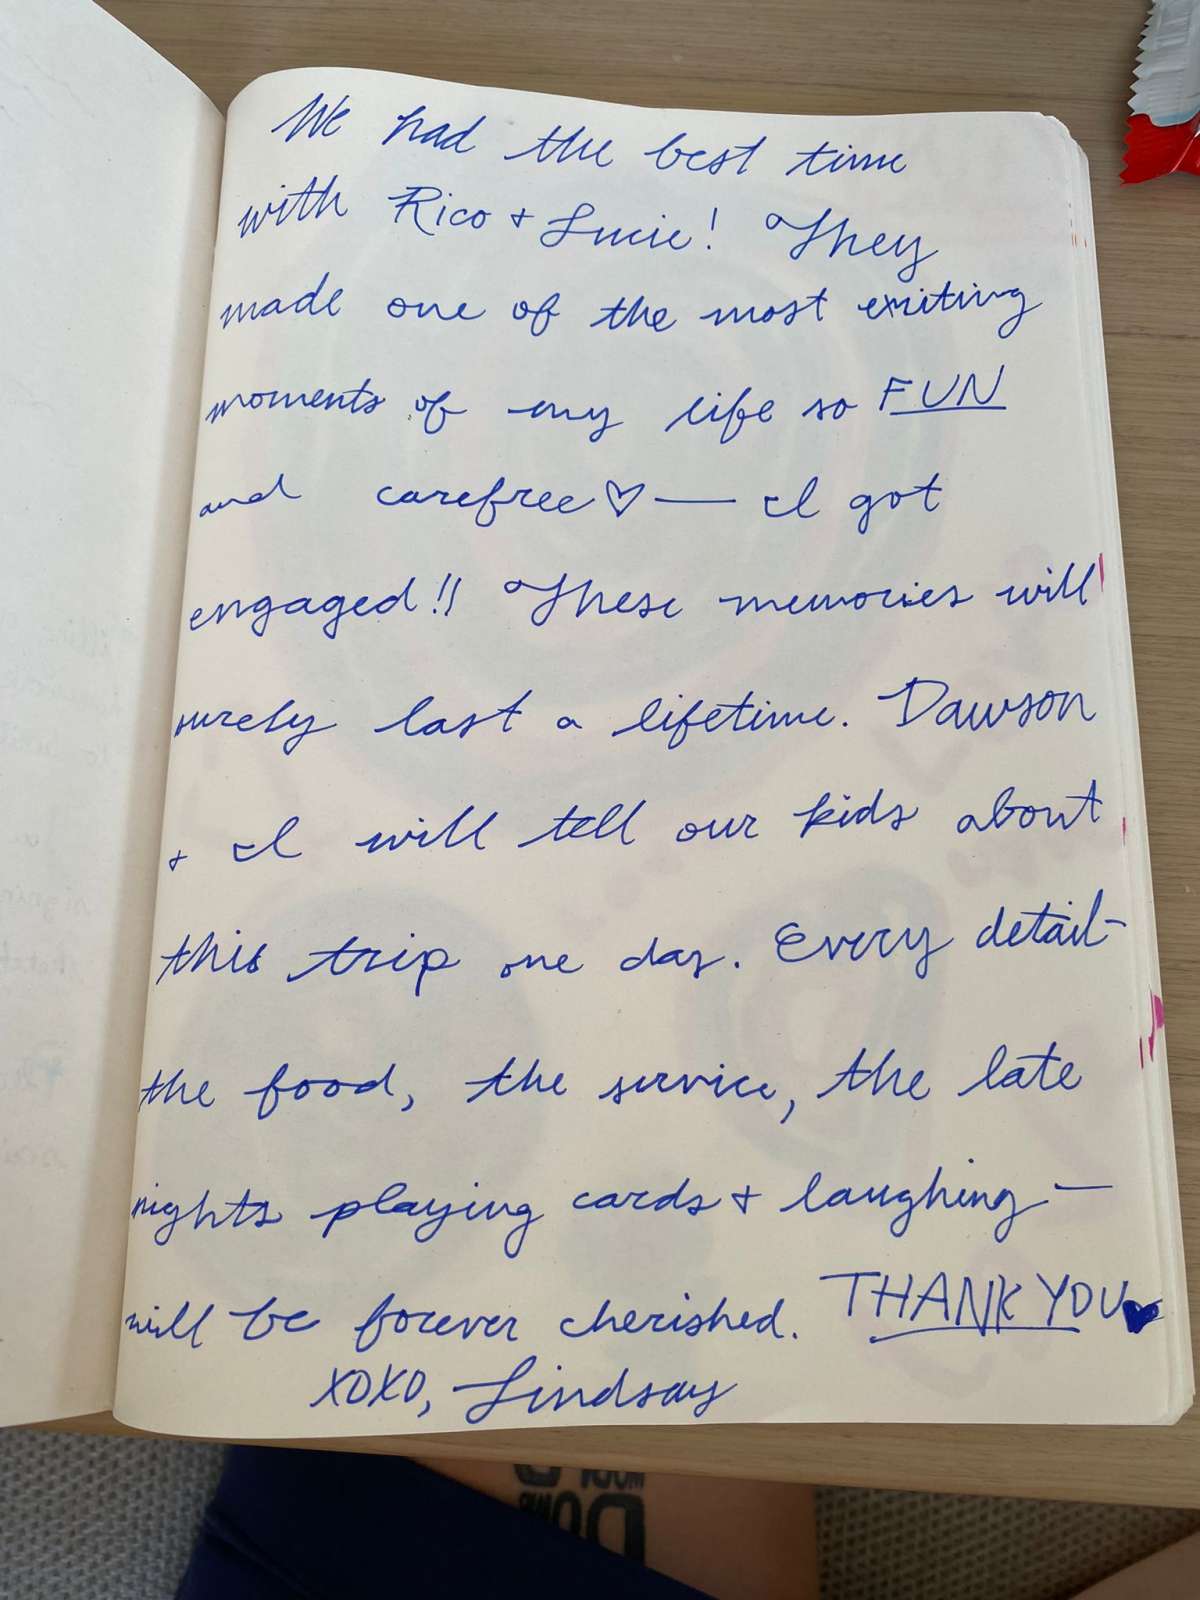 We had the best time
with Rico + Lucie! They
made one of the most exiting
moments of my life so FUN
and carefree♡ — I got
engaged!! These memories will
surely last a lifetime. Dawson
+ I will tell our kids about
this trip one day. Every detail-
the food, the service, the late
nights playing cards + laughing —
will be forever cherished. THANK YOU♥
XOXO, Lindsay